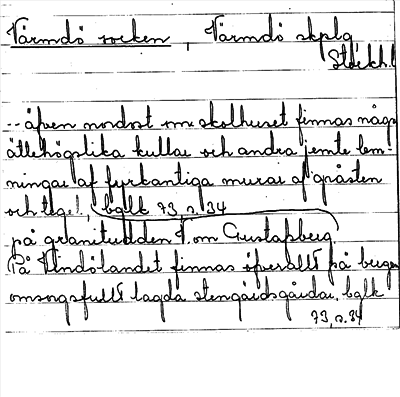 Värmdö socken, Värmdö skplg
Stockh.l
--- äfven nordost om skolhuset finnas någr
ättehögslika kullar och andra jemte lem-
ningar af fyrkantiga murar af gråsten
och tegel, bglk 73, s. 34
på granitudden V. om Gustafsberg.
På Vindölandet finnas öfverallt på bergen
omsorgsfullt lagda stengärdsgårdar. bglk
73, s. 34